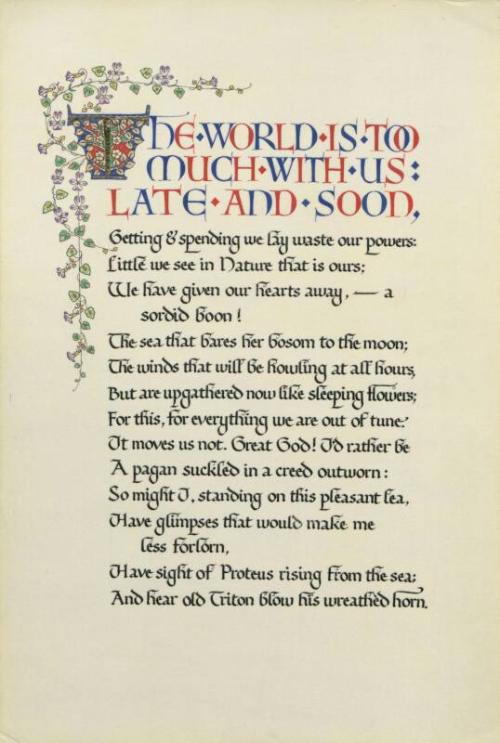 THE·WORLD·IS·TOO
MUCH·WITH·US:
LATE·AND·SOON,
Getting & spending we lay waste our powers:
Little we see in Nature that is ours;
We have given our hearts away, — a
sordid boon!
The sea that bares her bosom to the moon;
The winds that will be howling at all hours,
But are upgathered now like sleeping flowers;
For this, for everything we are out of tune:
It moves us not. Great God! I'd rather be
A pagan suckled in a creed outworn:
So might I, standing on this pleasant lea,
Have glimpses that would make me
less forlorn,
Have sight of Proteus rising from the sea;
And hear old Triton blow his wreathed horn.